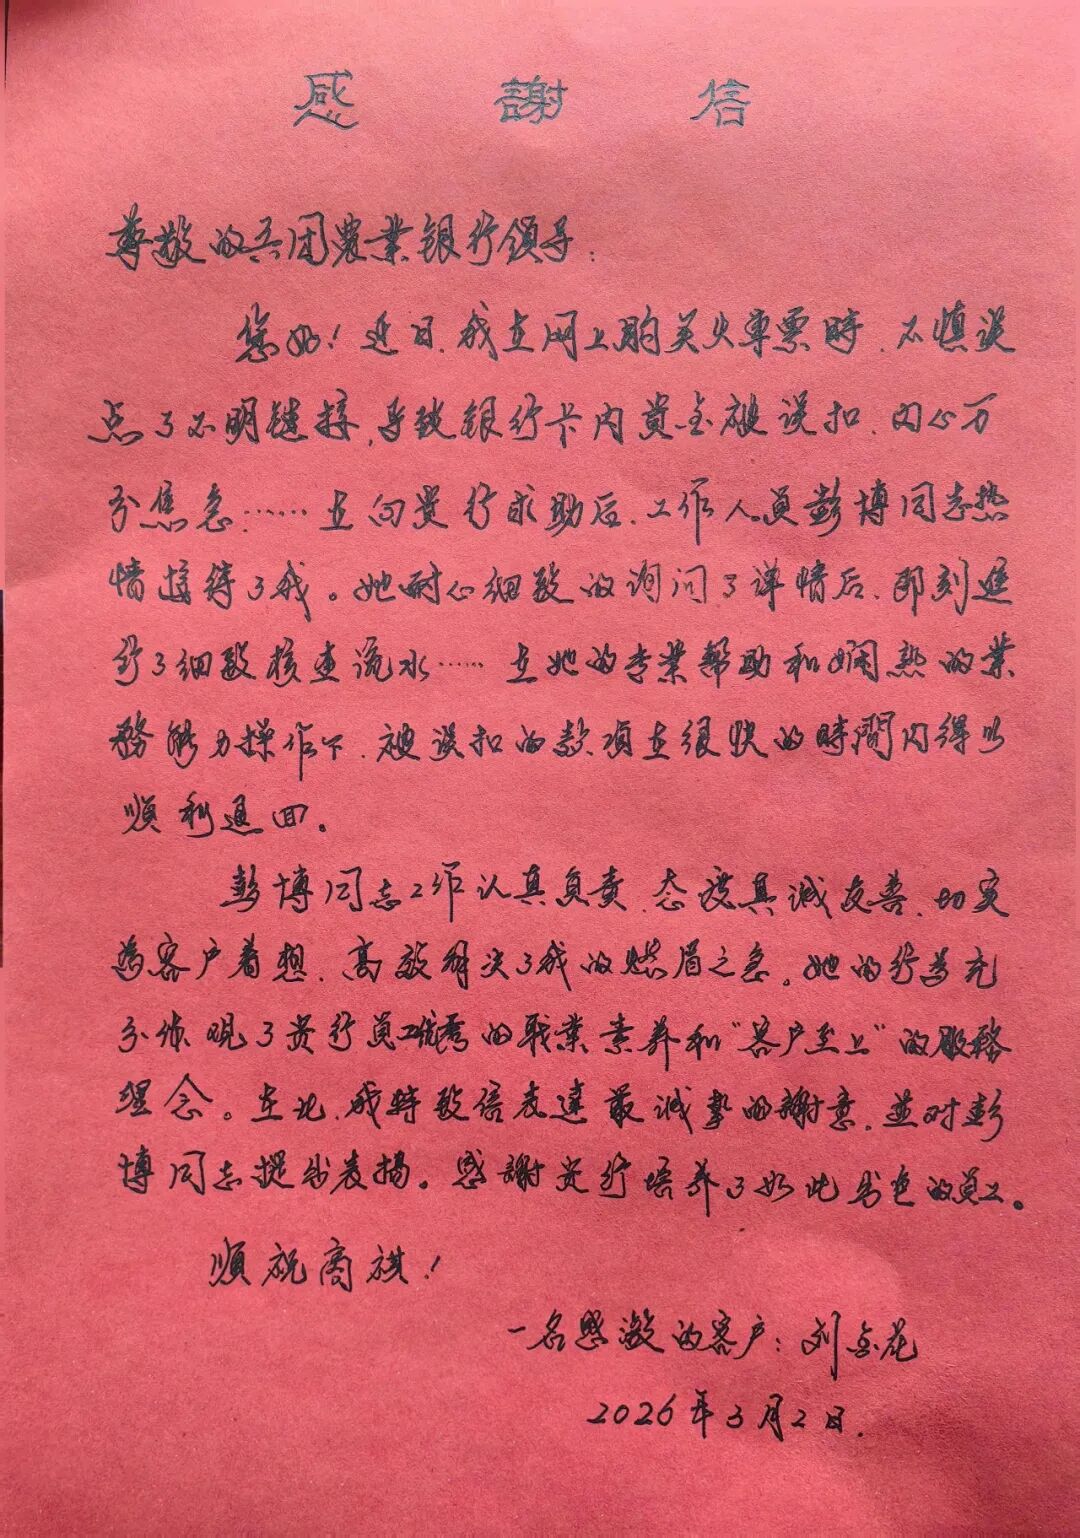 感謝信
尊敬的兵团農業銀行領导：
您好！近日，我在网上购买火車票時，不慎误
点了不明链接，导致銀行卡内資金被误扣，内心万
分焦急……在向贵行求助后，工作人員彭博同志热
情接待了我。她耐心细致的询问了详情后，即刻進
行了细致核查流水……在她的专業幫助和娴熟的業
務能力操作下，被误扣的款項在很快的時間内得以
順利追回。
彭博同志工作认真负责，态度真诚友善，切实
為客户着想，高效解决了我的燃眉之急。她的行為充
分体現了贵行員工優秀的職業素养和“客户至上”的服務
理念。在此，我特致信表達最诚挚的謝意，並对彭
博同志提出表揚。感謝贵行培养了如此出色的員工。
順祝商祺！
一名感激的客户：刘金花
2026年3月2日.